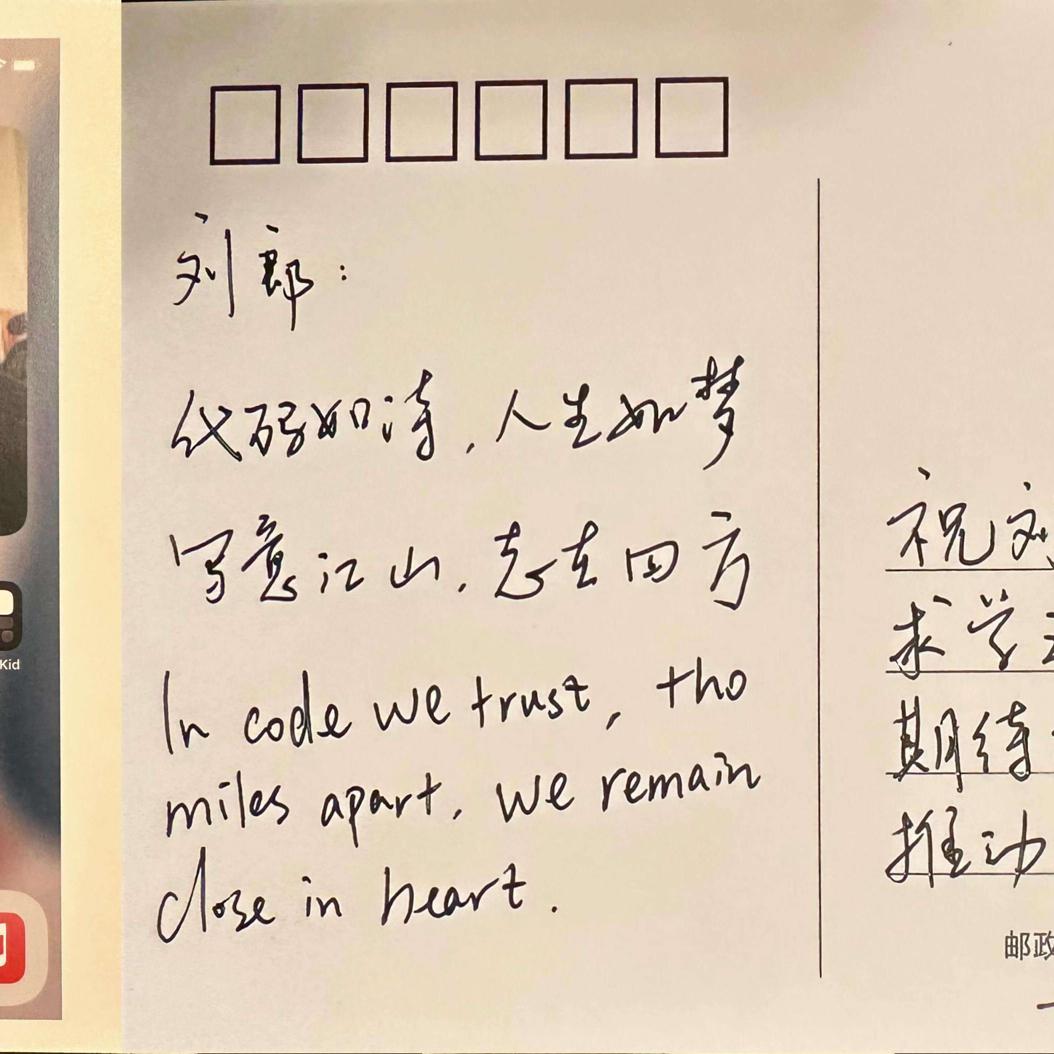 刘郎：
代码如诗，人生如梦
写意江山，志在四方
In code we trust, tho
miles apart, we remain
close in heart.
祝刘
求学
期待
推动
邮政
Kid